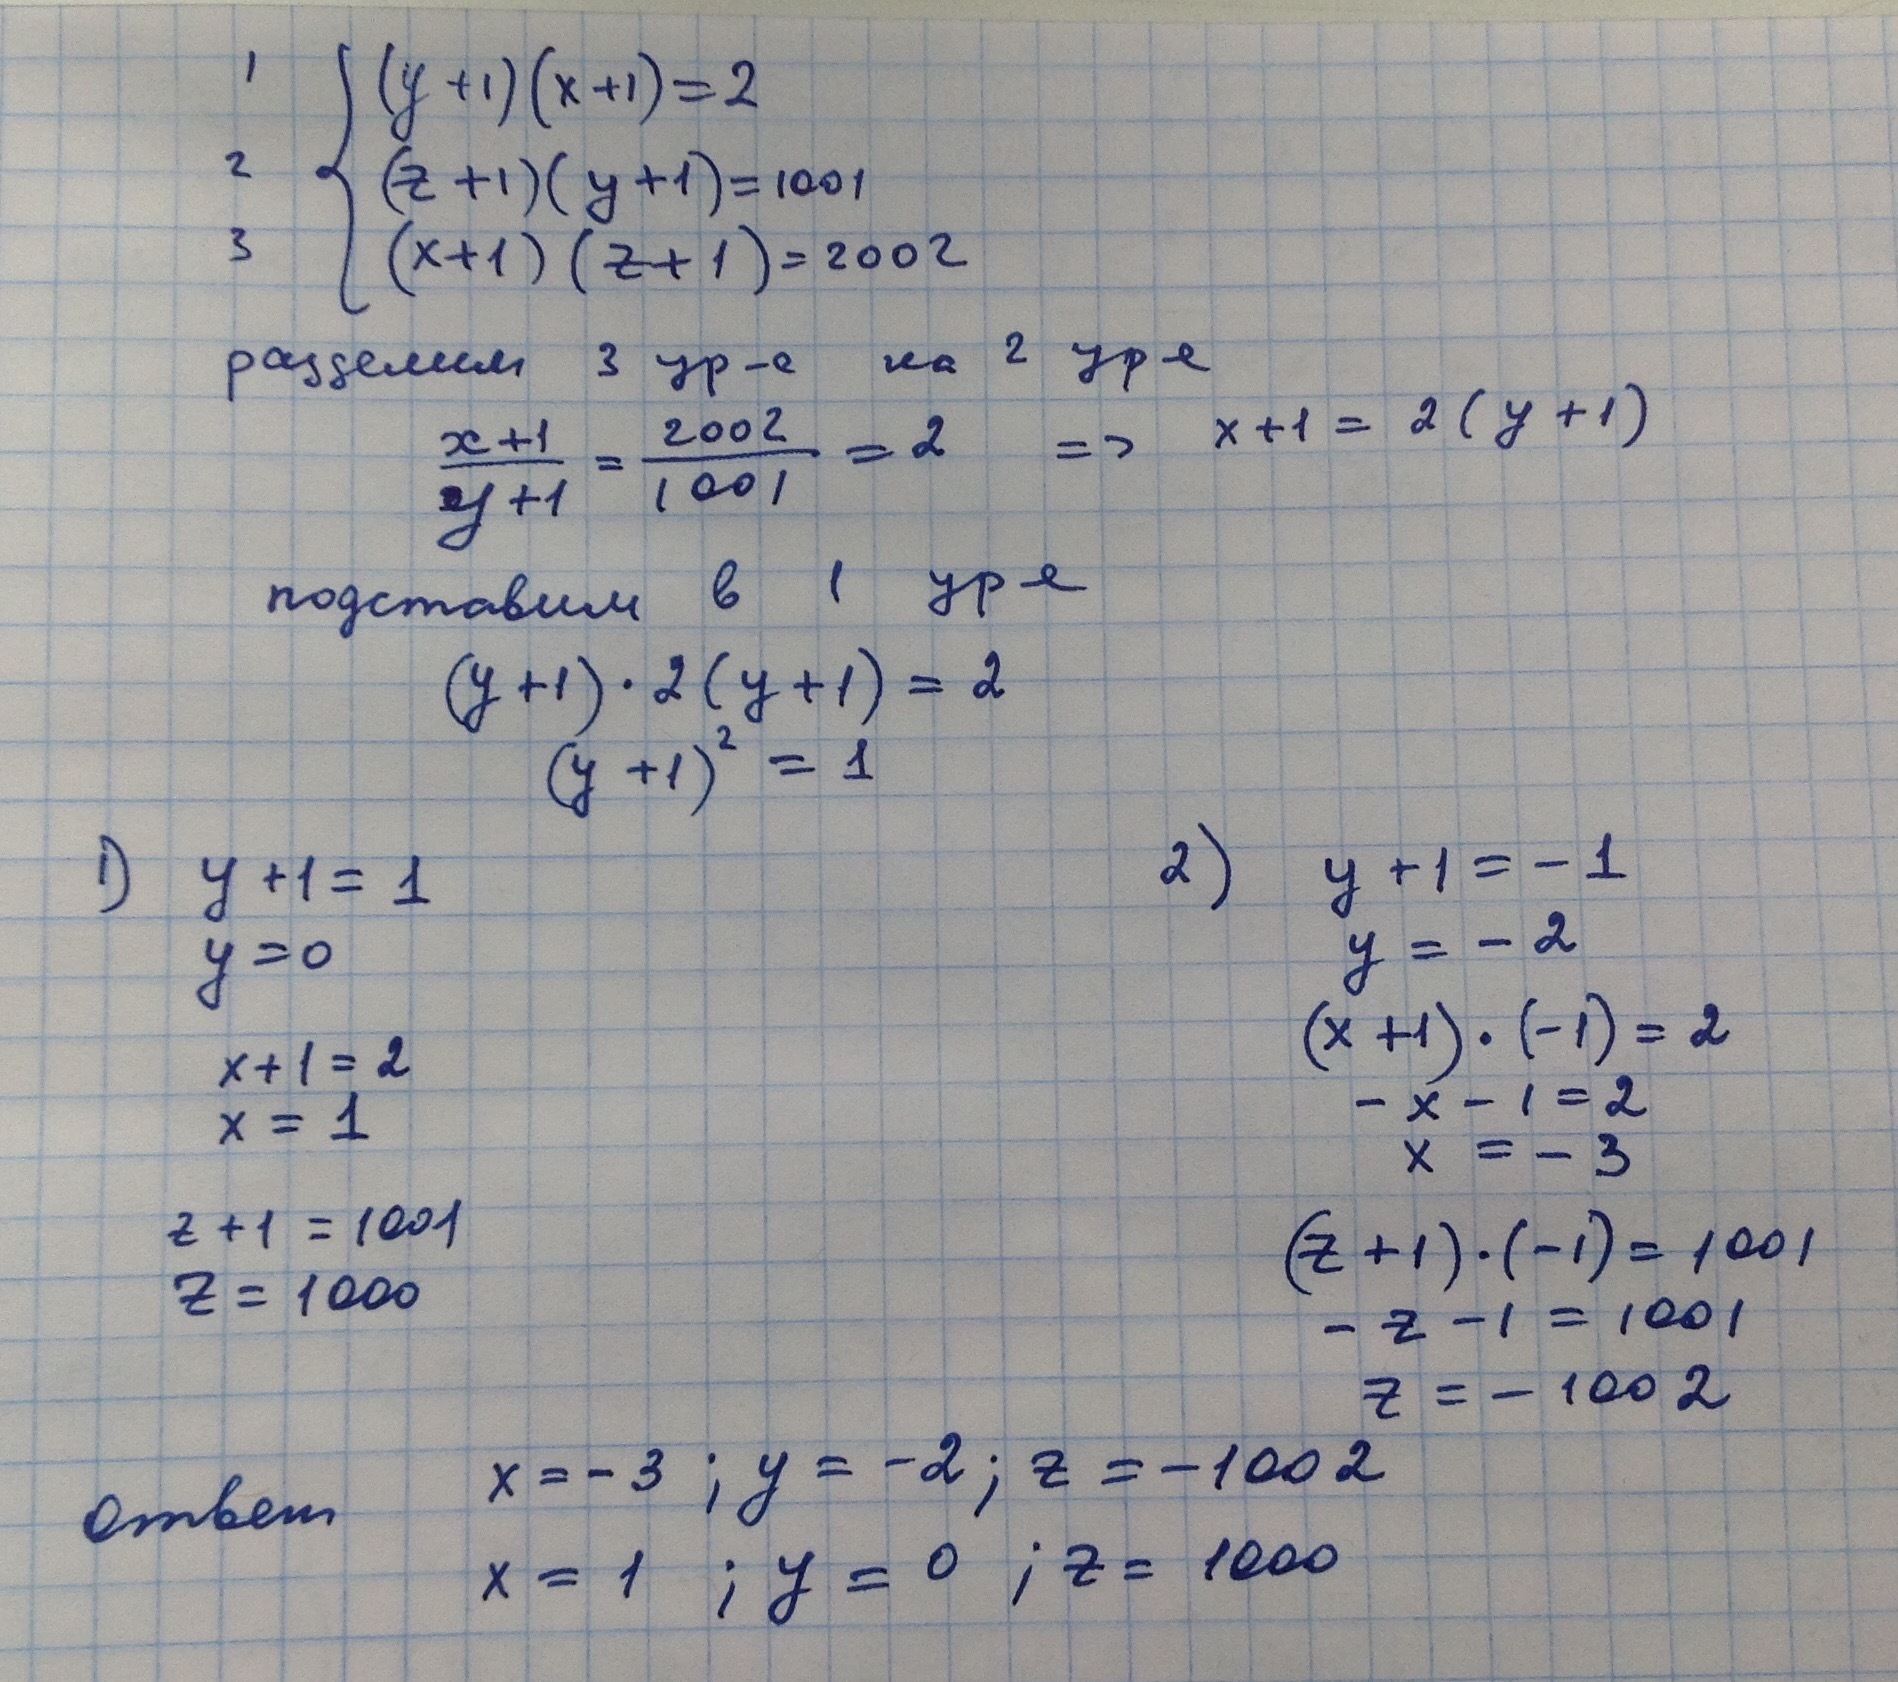 1 (y+1)(x+1)=2
2 (z+1)(y+1)=1001
3 (x+1)(z+1)=2002
разделим 3 ур-е на 2 ур е
x+1/y+1 = 2002/1001 = 2 => x+1 = 2(y+1)
подставим в 1 ур е
(y+1)·2(y+1) = 2
(y+1)² = 1
1) y+1=1
y=0
x+1=2
x=1
z+1=1001
z=1000
2) y+1=-1
y=-2
(x+1)·(-1)=2
-x-1=2
x=-3
(z+1)·(-1)=1001
-z-1=1001
z=-1002
ответ x=-3; y=-2; z=-1002
x=1; y=0; z=1000